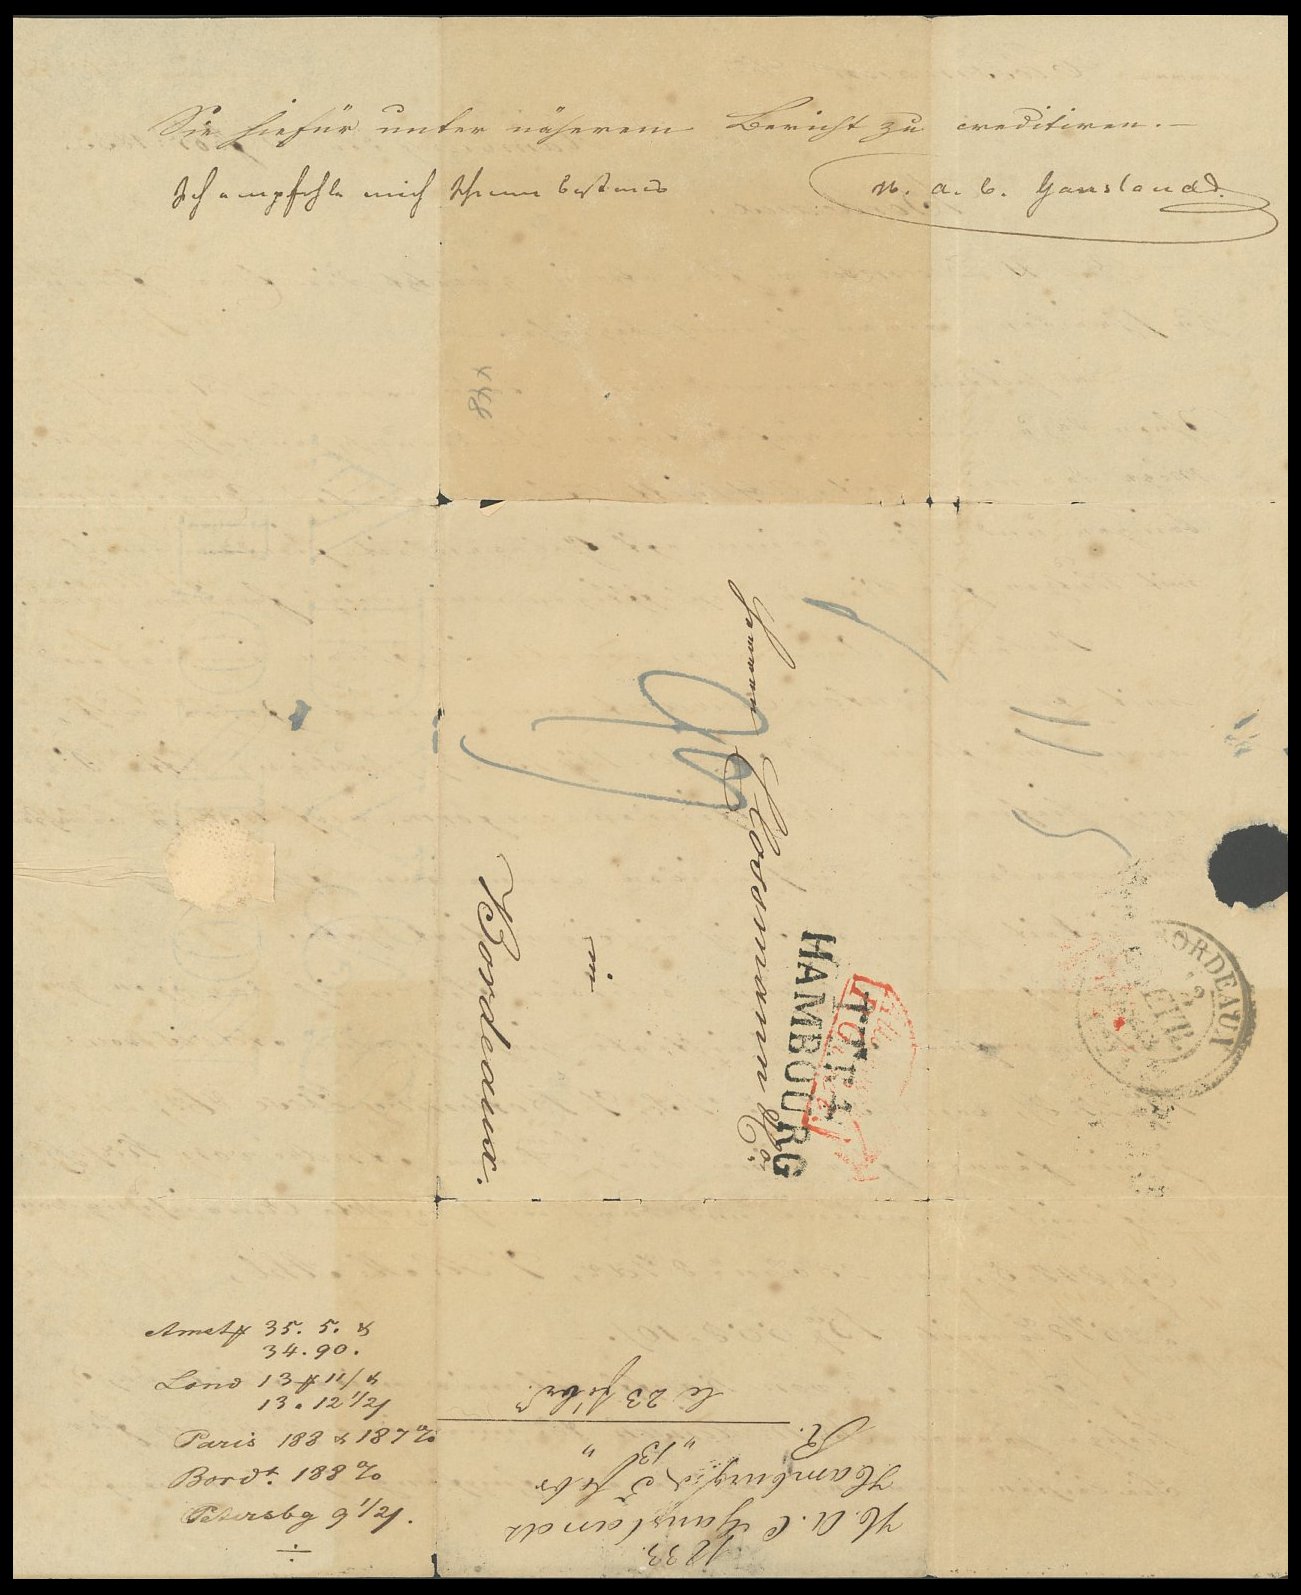 Sie hiefür unter näherem Bericht zu creditiren.—
Ich empfehle mich Ihnen bestens
N. A. C. Gansland
x48
Herren Cossmann & Co.
in
Bordeaux.
T.T.R.4.
HAMBOURG
BORDEAUX
FEVR.
Amst 35. 5. &
34. 90.
Lond 13 # 11/ &
13. 12 1/2
Paris 188 & 187 %
Bordx. 188 %
Petersbg 9 1/2.
1833.
N. A. C. Gansland
Hamburg d 5 febr
" 13 "
R.
le 23 febr.